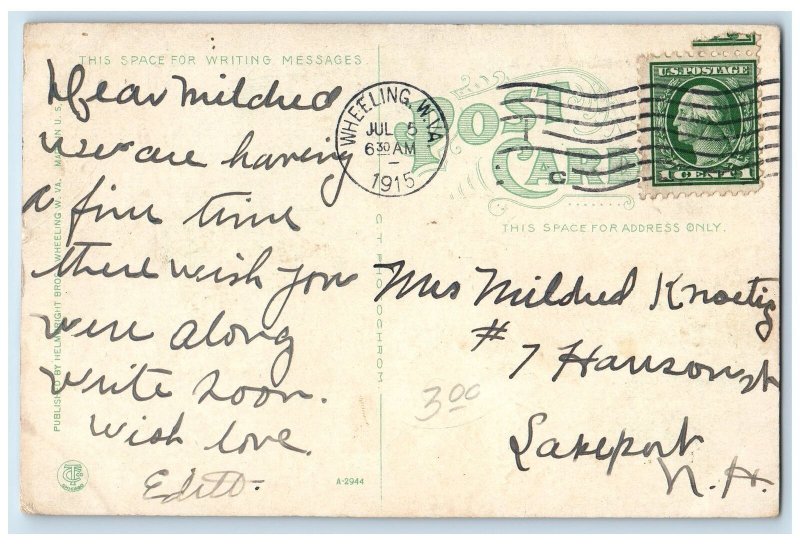 THIS SPACE FOR WRITING MESSAGES
Dear Mildred
We are having
a fine time
there wish you
were along
write soon.
with love.
Edith.
PUBLISHED BY HELMBRIGHT BROS. WHEELING W. VA. MADE IN U.S.A.
C T PHOTOCHROM
A-2944
WHEELING, W. VA.
JUL 5
6 30 AM
1915
POST
CARD
U.S. POSTAGE
1 CENT 1
THIS SPACE FOR ADDRESS ONLY.
Mrs Mildred
# 7 Hanson st
Lakeport
N. H.
3.00